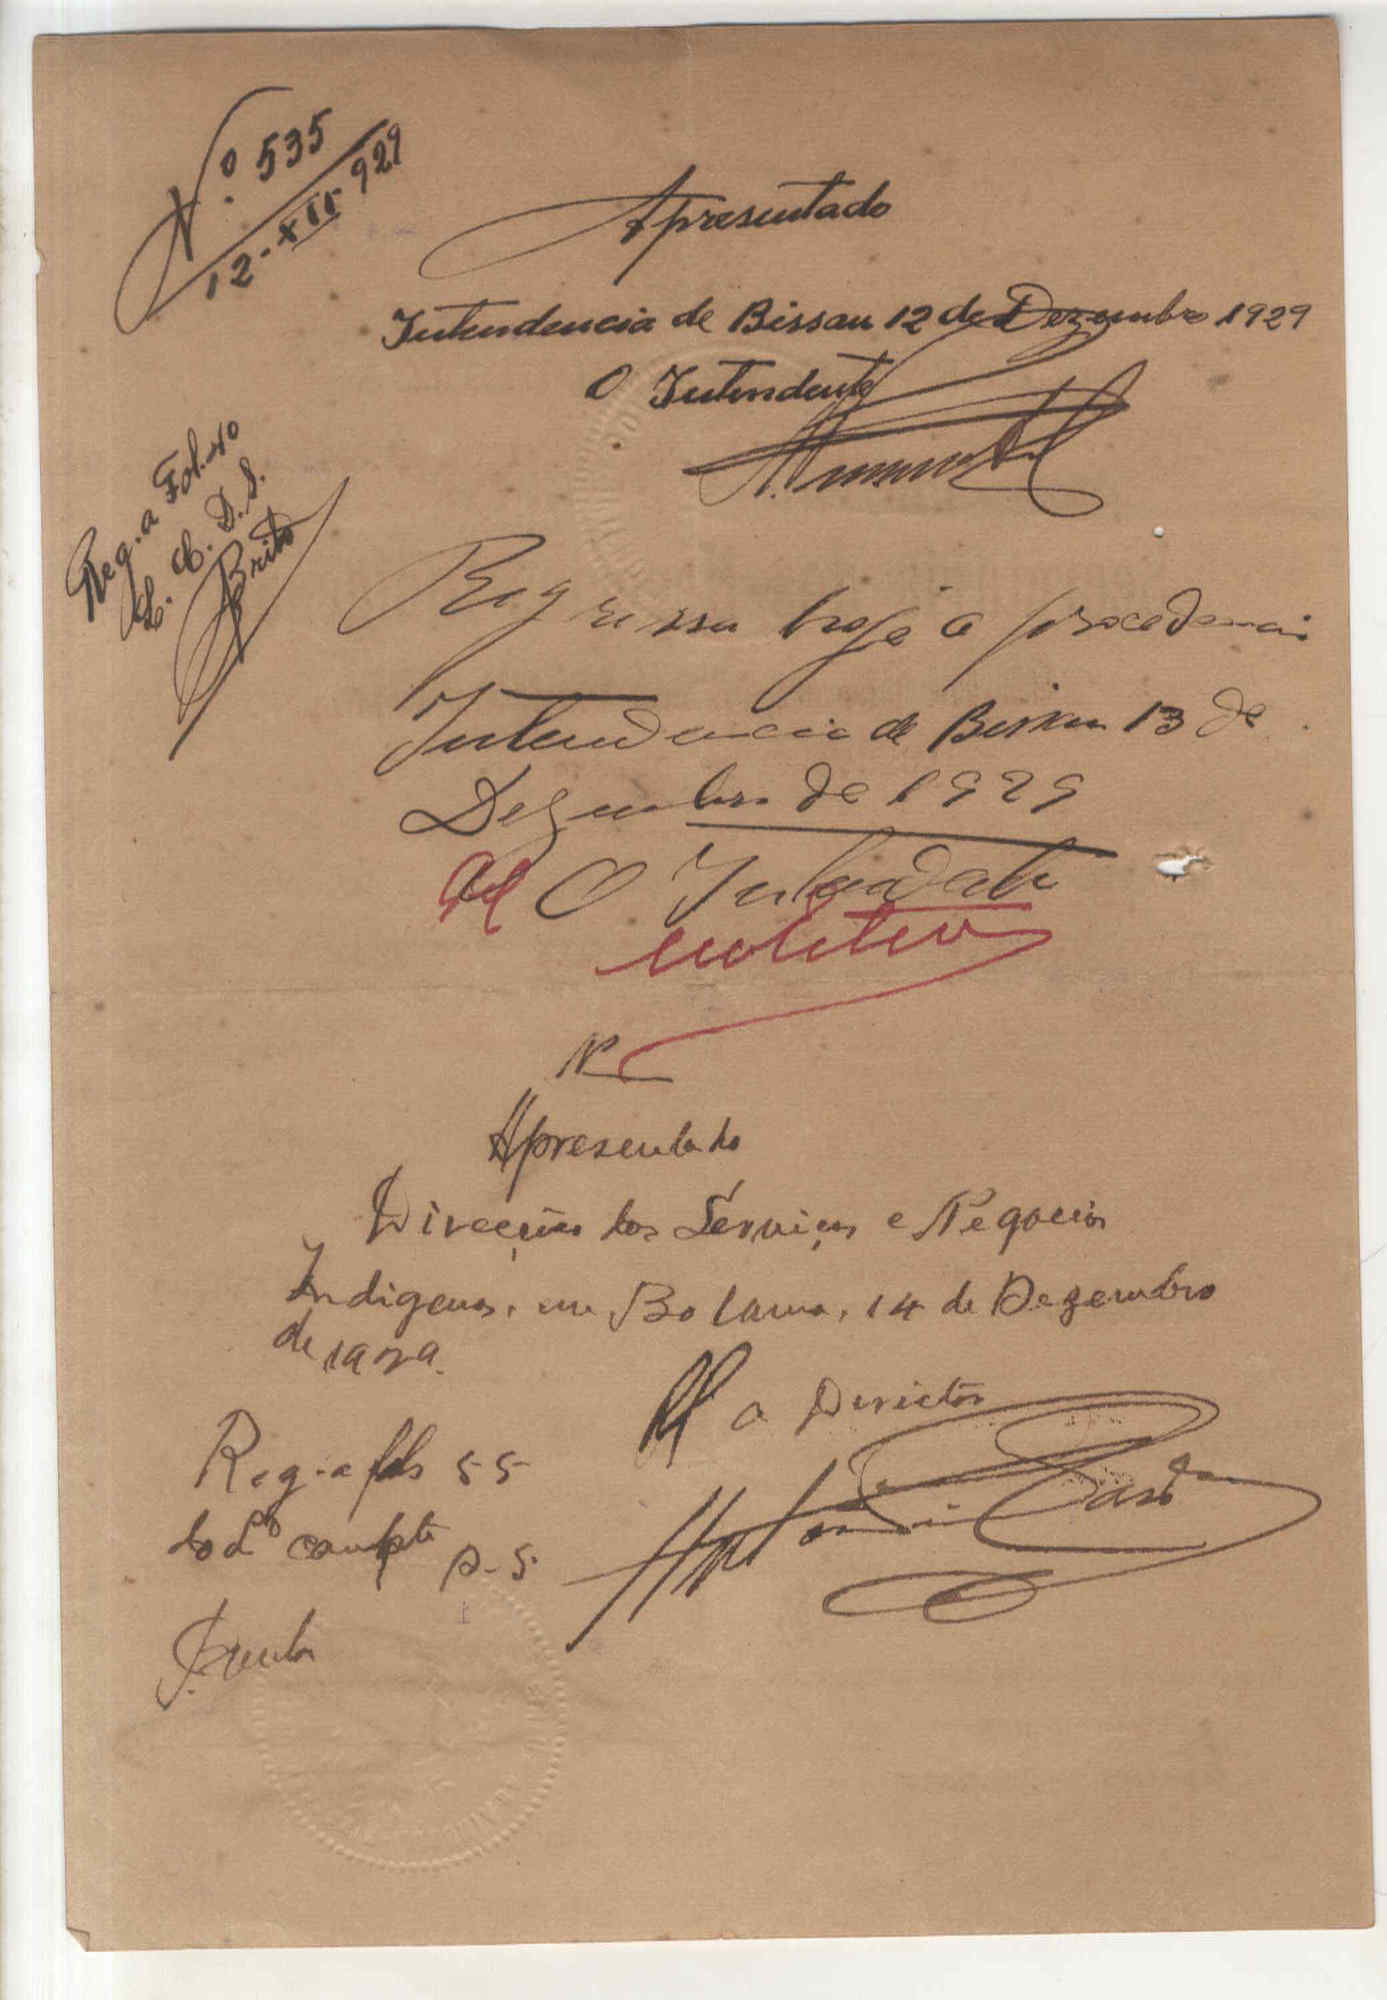 Nº 535
12-XII-929
Apresentado
Intendencia de Bissau 12 de Dezembro 1929
O Intendente
Reg. a Fol. 40
D. S.
Brito
Regressa hoje a procedencia
Intendencia de Bissau 13 de
Dezembro de 1929
O Intendente
Nº
Apresentado
Direcção dos Serviços e Negocios
Indigenas, em Bolama, 14 de Dezembro
de 1929.
O Director
Reg. a fls 55
do Lº compte